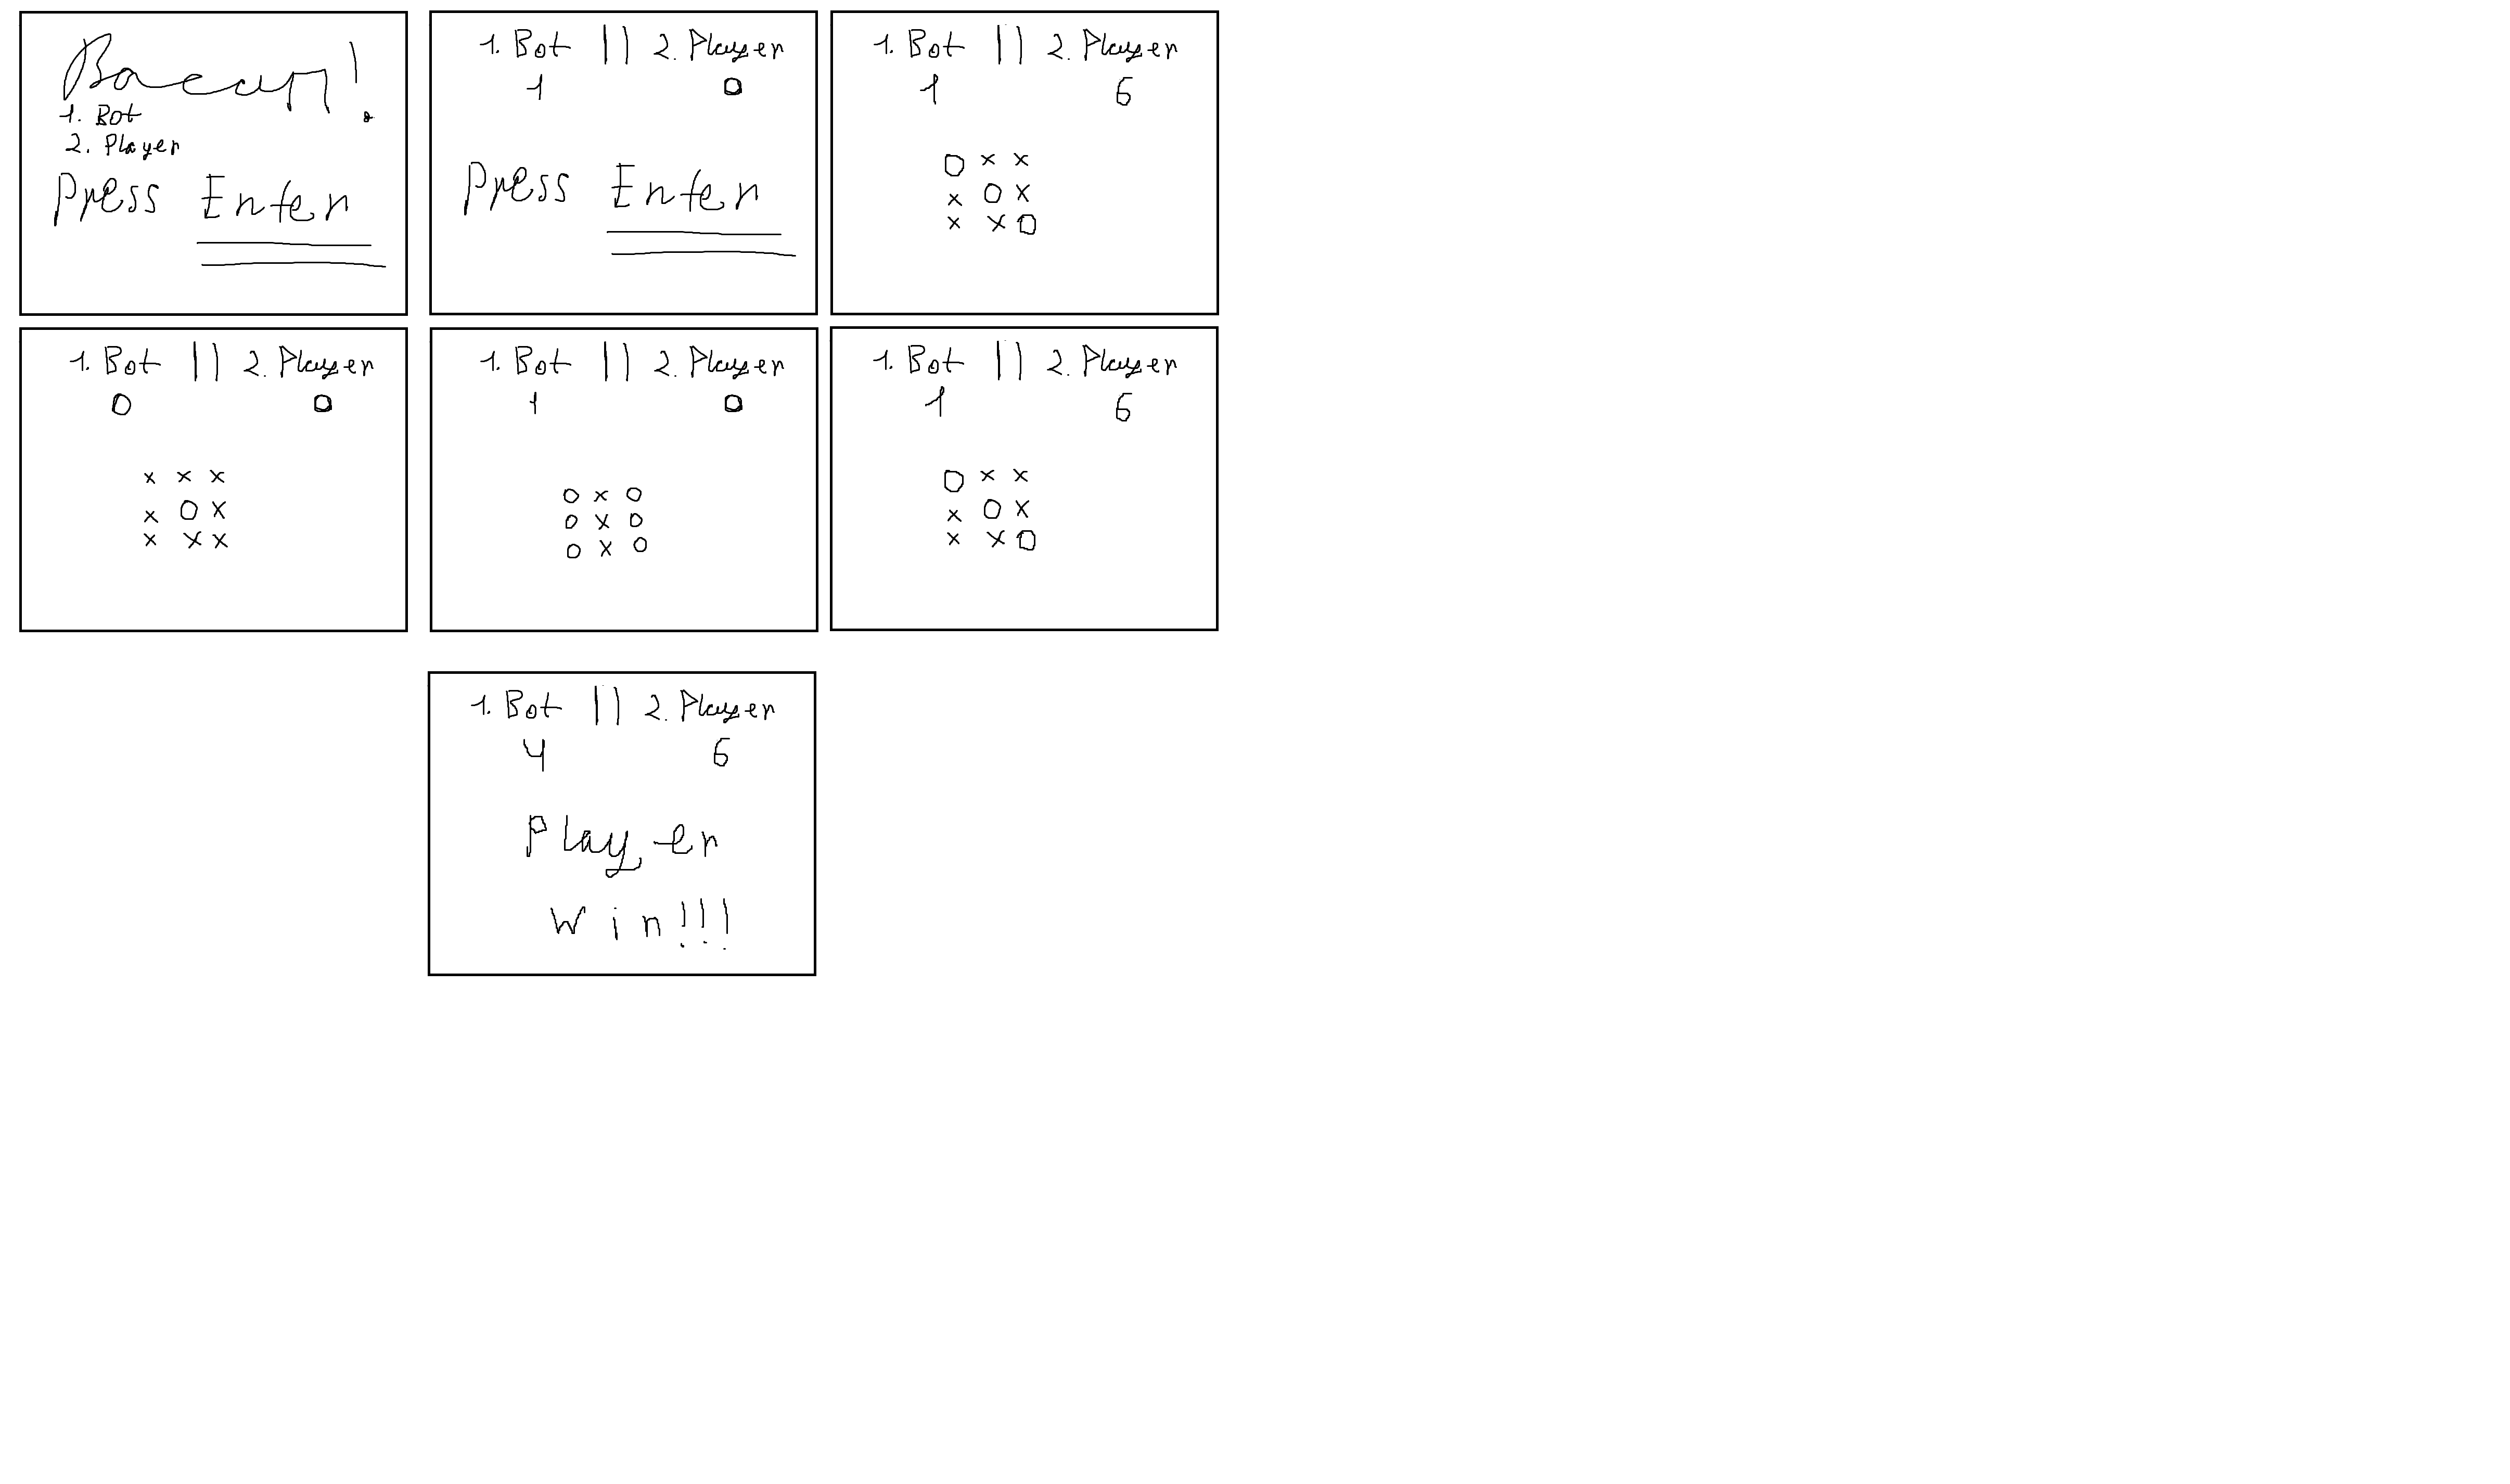 1. Bot
2. Player
Press Enter
1. Bot || 2. Player
1 0
Press Enter
1. Bot || 2. Player
1 6
O x x
x O x
x x O
1. Bot || 2. Player
0 0
x x x
x O x
x x x
1. Bot || 2. Player
1 0
O x O
O x O
O x O
1. Bot || 2. Player
1 6
O x x
x O x
x x O
1. Bot || 2. Player
4 6
Player
Win!!!